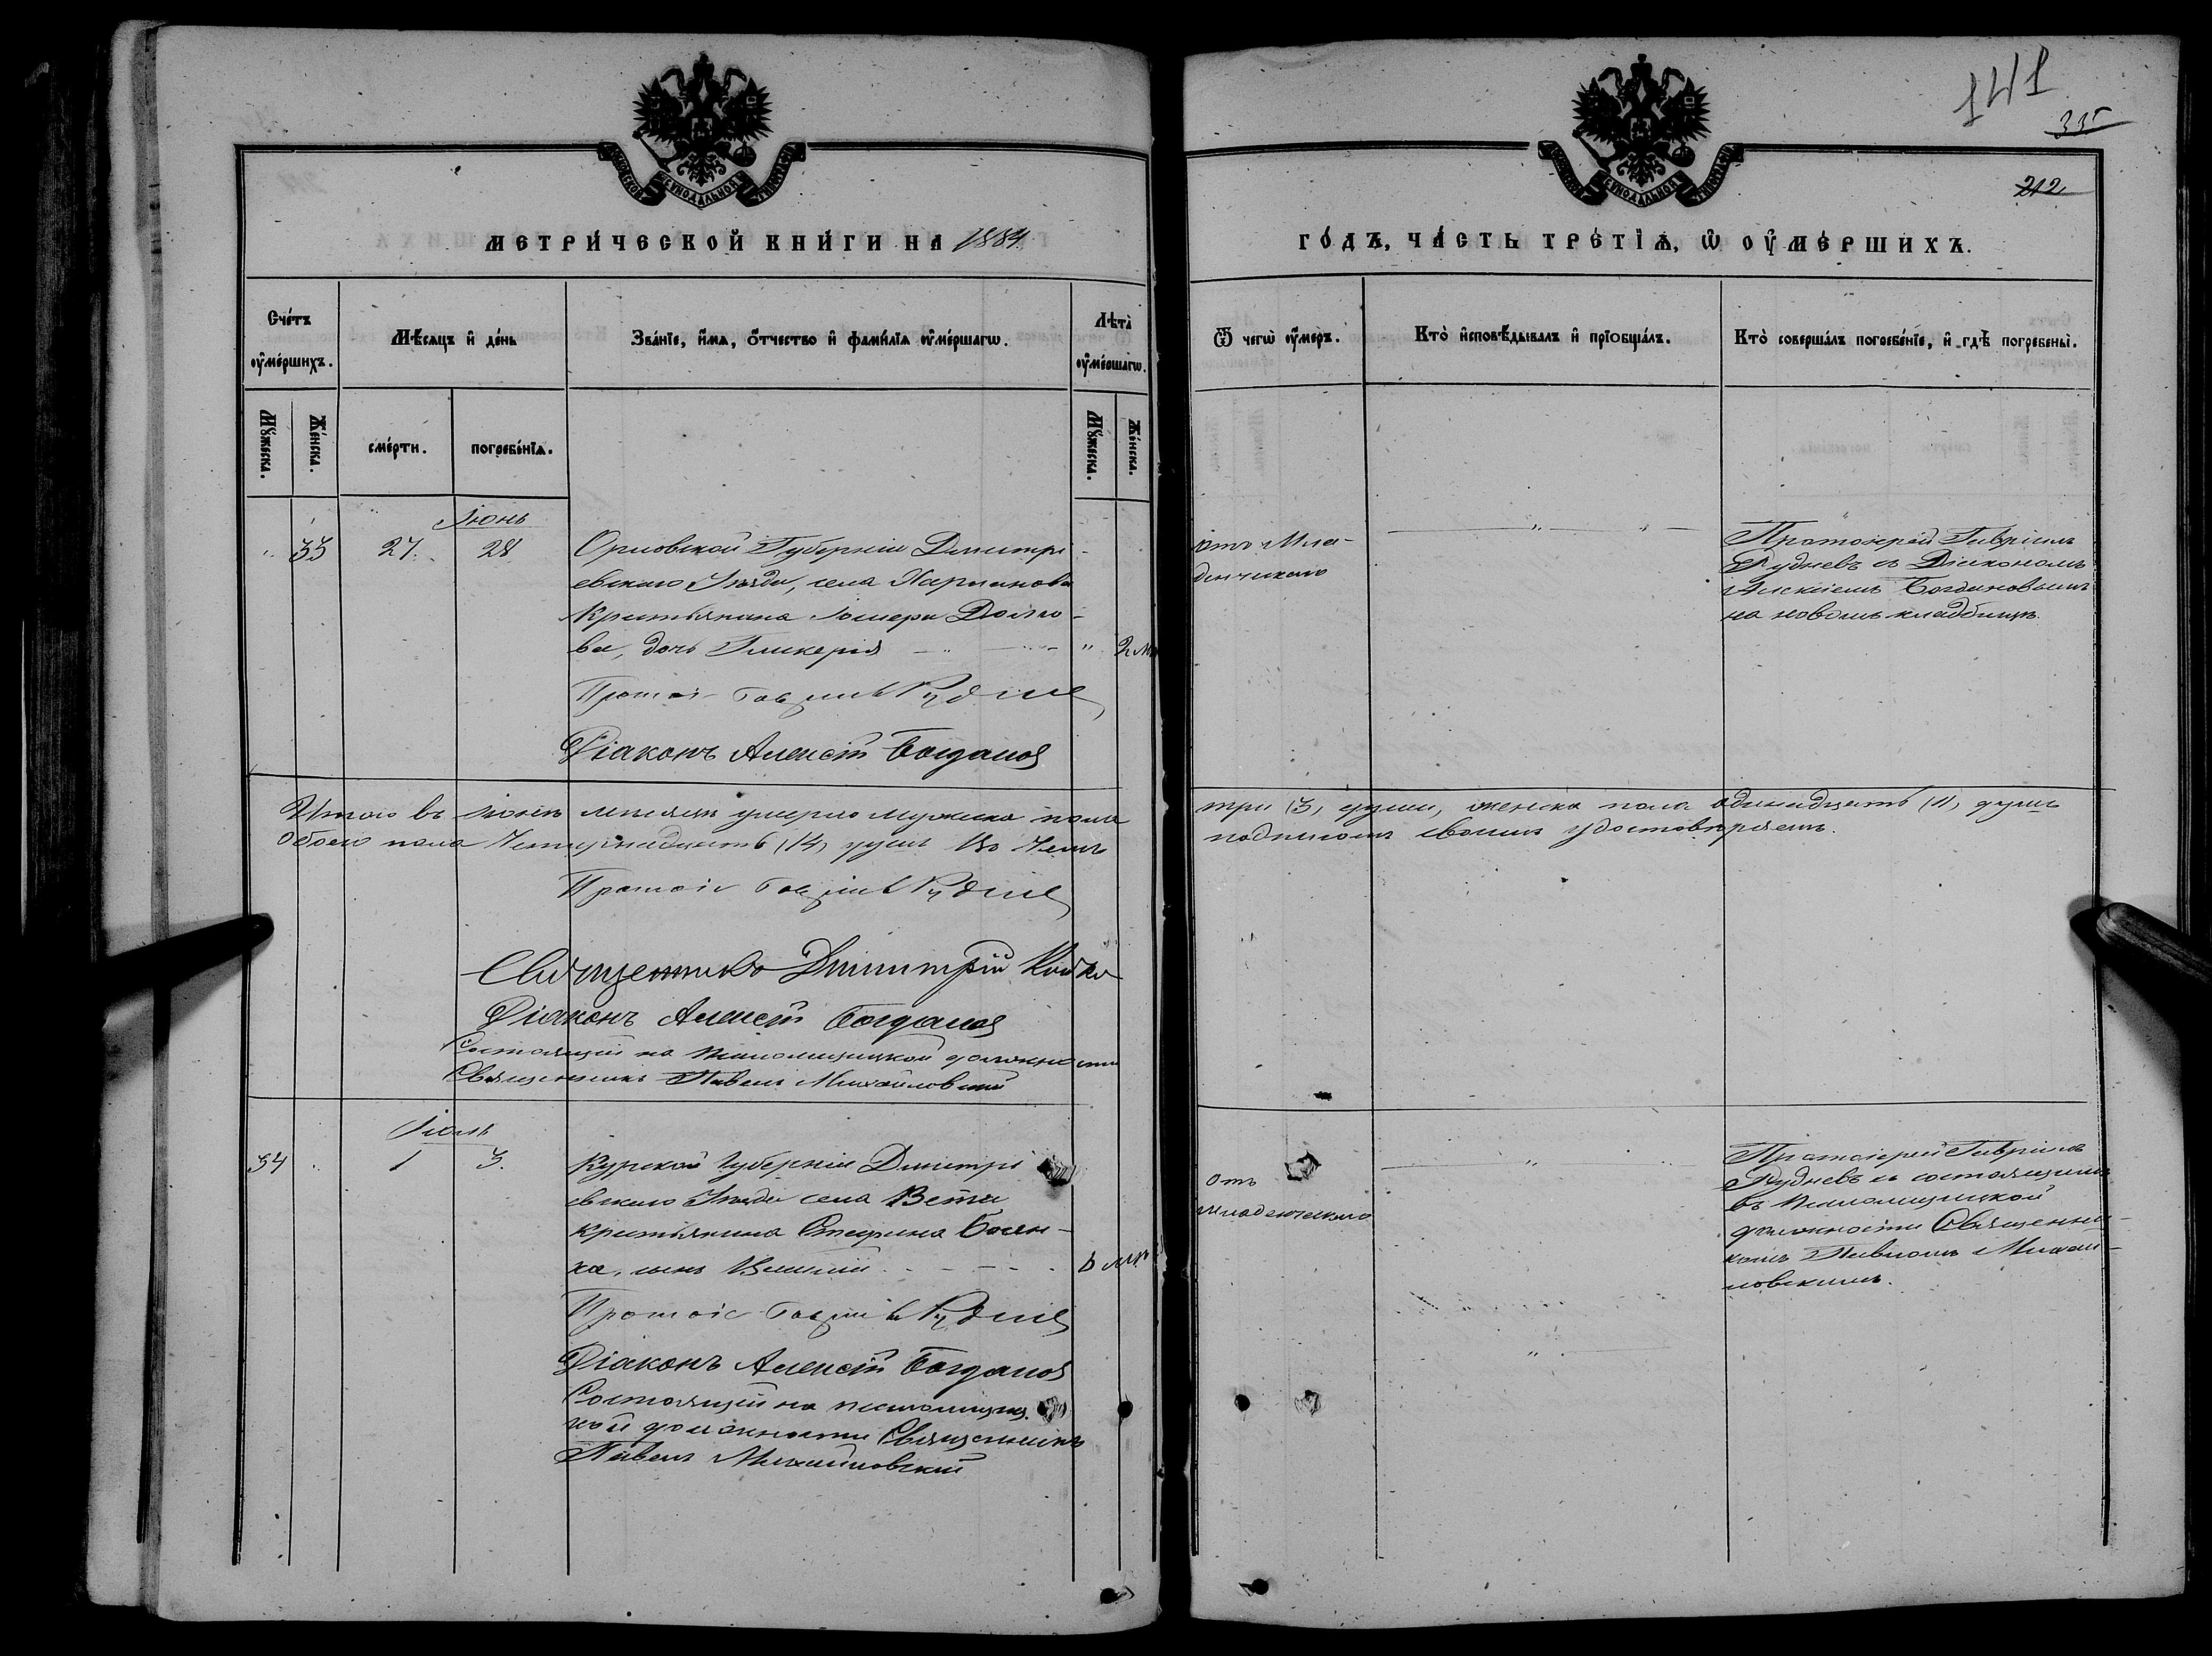 141
335
212
МЕТРИ́ЧЕСКОЙ КНИ́ГИ НА 1884
ГО́ДЪ, ЧА́СТЬ ТРЕ́ТІѦ, Ѡ ОУ҆МЕ́РШИХЪ.
Сче́тъ оу҆ме́ршихъ.
Мѣ́сяцъ и҆ де́нь
Зва́нїе, и҆́мѧ, ѻ҆́тчество и҆ фами́лїѧ оу҆ме́ршагѡ.
Лѣта̀ оу҆ме́ршагѡ.
Ѿ чегѡ̀ оу҆́меръ.
Кто̀ и҆сповѣ́дывалъ и҆ прїѻбща́лъ.
Кто̀ соверша́лъ погребе́нїе, и҆ гдѣ̀ погребены̀.
Мꙋ́жеска.
Же́нска.
сме́рти.
погребе́нїѧ.
Мꙋ́жеска.
Же́нска.
Іюнь
33 27. 28
Орловской Губерніи Дмитрі-
евскаго Уѣзда, села
Крестьянина
ва, дочь Гликерія " 2 м
Протоі Гавріил Руднев
Діаконъ Алексій Богданов
отъ Мла-
денческаго
Протоіерей Гавріилъ
Рудневъ съ Діакономъ
Алексіемъ Богдановымъ
на новомъ кладбищѣ.
Итого въ Іюнѣ мѣсяцѣ умерло мужска пола
три (3) души, женска пола одинадцать (11) душъ
обоего пола Четырнадцать (14) душъ Въ чемъ
подписомъ своимъ удостовѣряемъ.
Протоіе Гавріил Руднев
Священникъ Димитрій
Діаконъ Алексій Богданов
Состоящій на Псаломщицкой должности
Священникъ Павелъ Михайловскій
Іюль
34 1 3.
Курской Губерніи Дмитрі
евскаго Уѣзда села
крестьянина Стефана
ха, сынъ 6 мѣ
Протоіе Гавріил Руднев
Діаконъ Алексій Богданов
Состоящій на псаломщиц
кой должности Священникъ
Павелъ Михайловскій
отъ
младенческаго
Протоіерей Гавріилъ
Рудневъ съ состоящимъ
въ Псаломщицкой
должности Священни-
комъ Павломъ Михай-
ловскимъ.